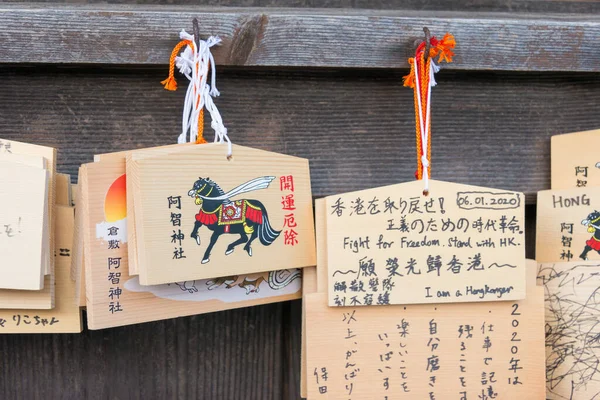 開運厄除
阿智神社
倉敷
阿智神社
りこちゃん
香港を取り戻せ!
06.01.2020
正義のための時代革命
Fight for Freedom. Stand with HK.
~願榮光歸香港~
解散警隊
刻不容緩
I am a Hongkonger
2020年は
仕事で記憶
残ることを
自分磨きを
楽しいことを
いっぱいする
以上、がんばり
保田
HONG
阿智神
阿智